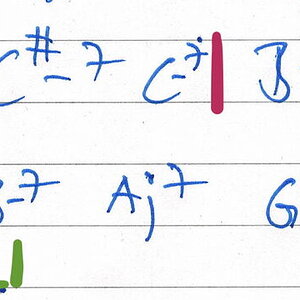 C#-7 C-7 B
-7 Aj7 G